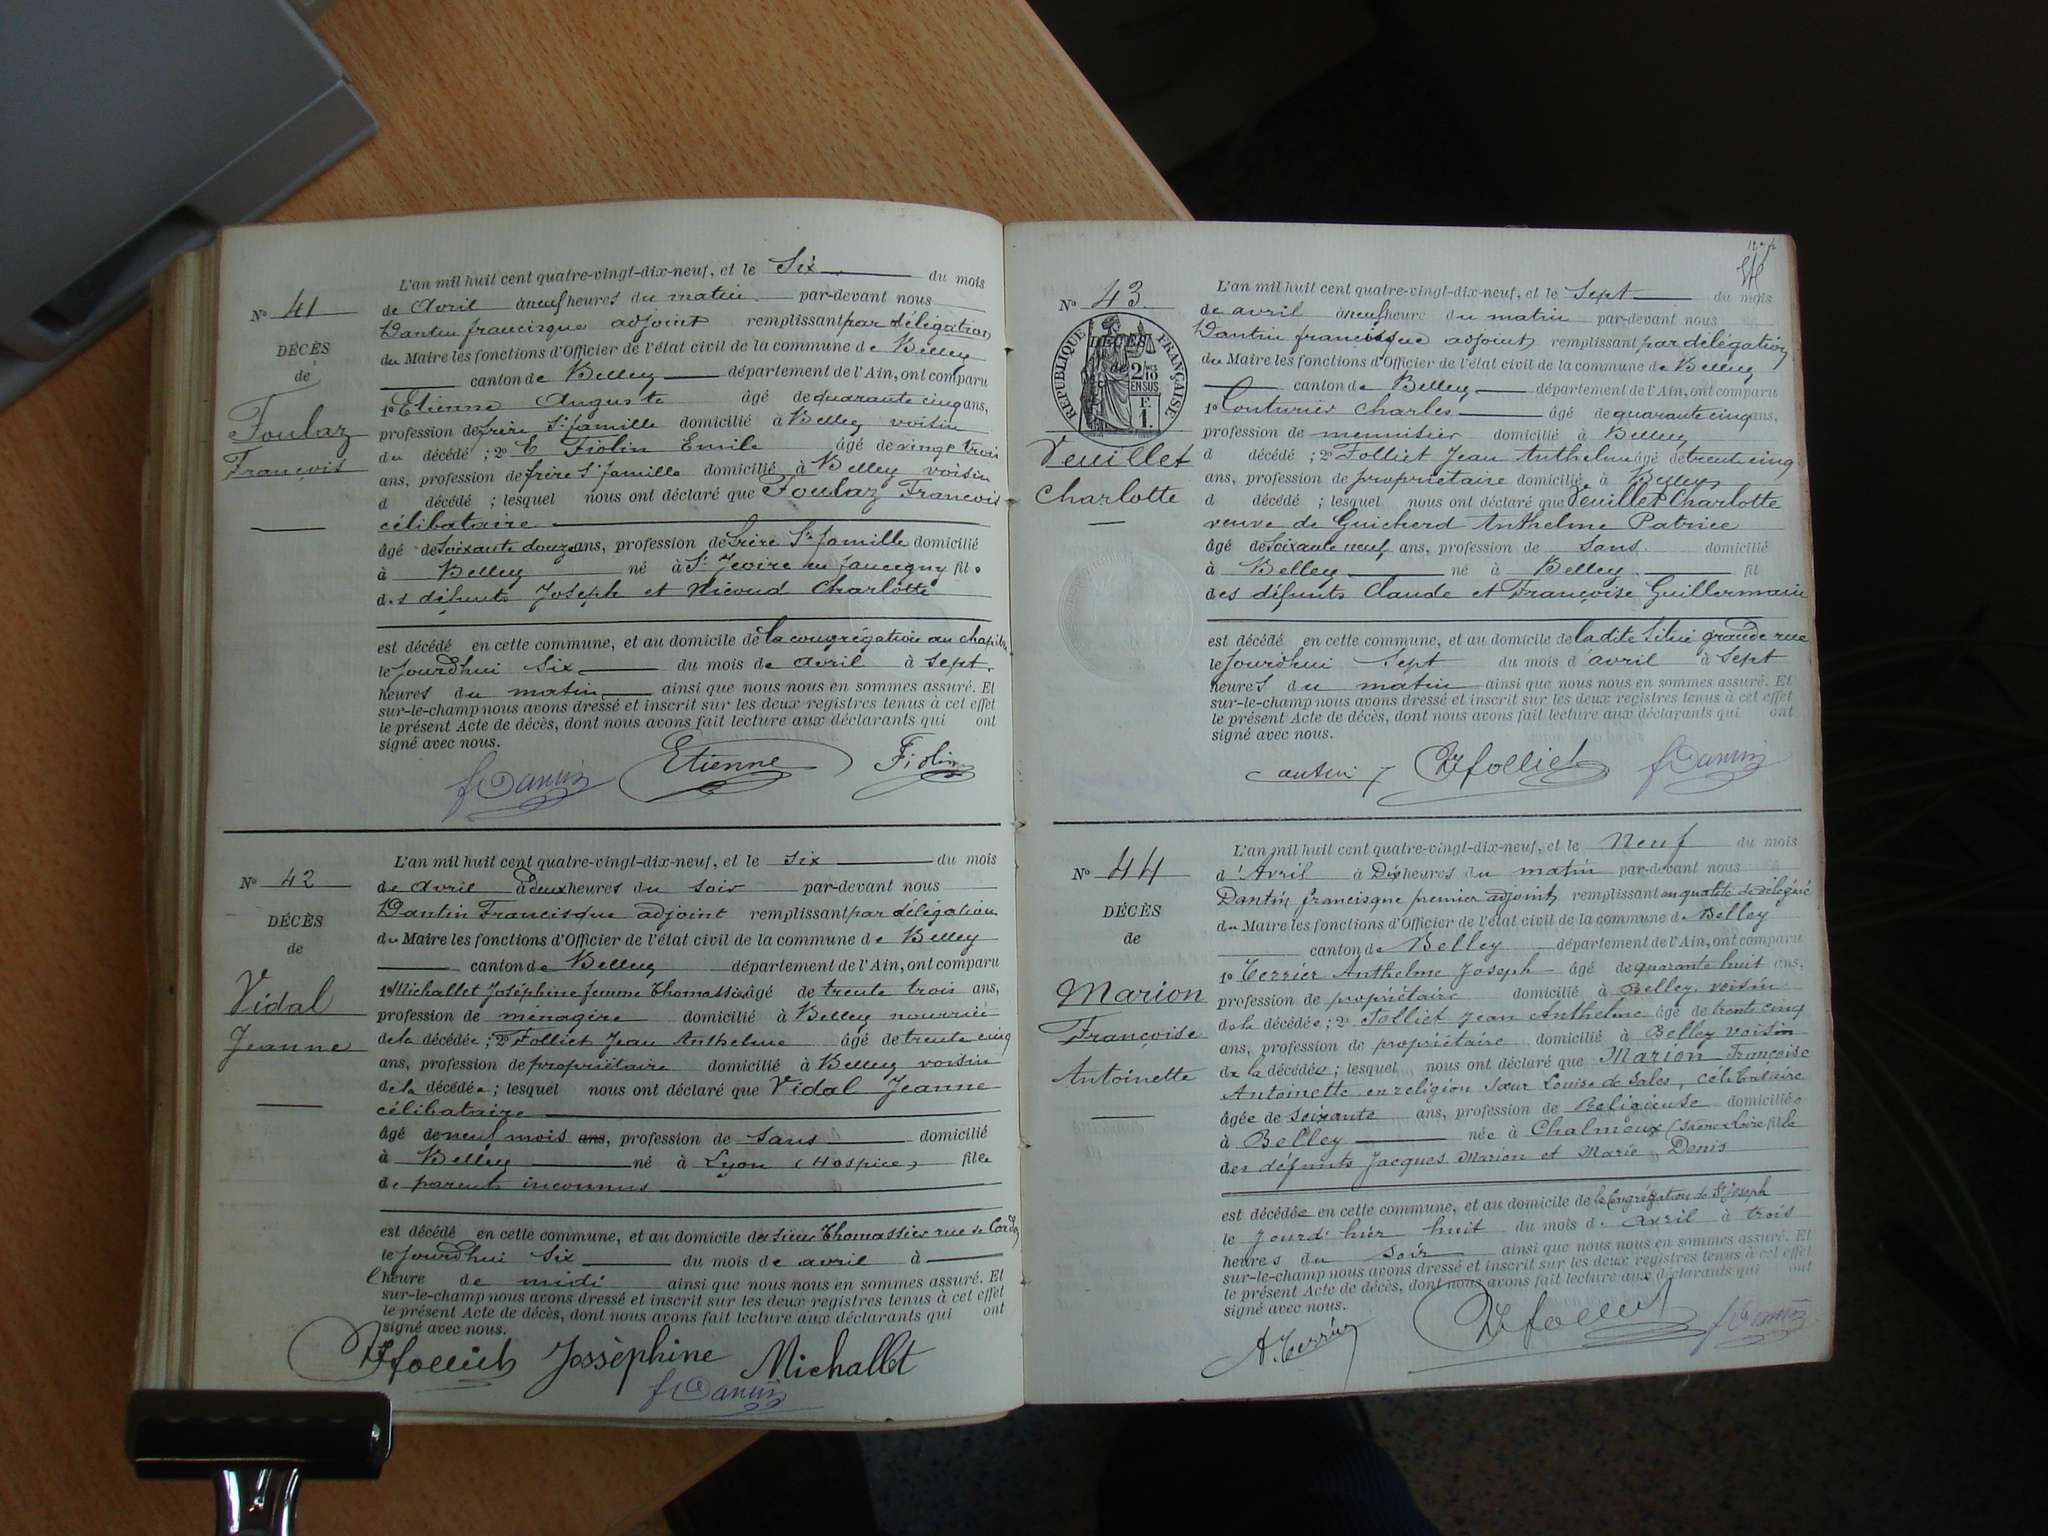 L'an mil huit cent quatre-vingt-dix-neuf, et le Six du mois
de Avril à neuf heures du matin par-devant nous
Dantin francisque adjoint remplissant par délégation
du Maire les fonctions d'Officier de l'état civil de la commune de Belley
canton de Belley département de l'Ain, ont comparu
1o Etienne Auguste âgé de quarante cinq ans,
profession de frère Ste famille domicilié à Belley voisin
du décédé ; 2o E Fiolin Emile âgé de vingt trois
ans, profession de frère Ste famille domicilié à Belley voisin
d décédé ; lesquel nous ont déclaré que Foulaz François
célibataire
âgé de Soixante douze ans, profession de frère Ste famille domicilié
à Belley né à St Jeoire en faucigny fils
des défunts Joseph et Nicoud Charlotte
est décédé en cette commune, et au domicile de la congrégation au
le jourd'hui six du mois de avril à sept
heures du matin ainsi que nous nous en sommes assuré. Et
sur-le-champ nous avons dressé et inscrit sur les deux registres tenus à cet effet
le présent Acte de décès, dont nous avons fait lecture aux déclarants qui ont
signé avec nous.
No 41
DÉCÈS
de
Foulaz
François
f Dantin Etienne Fiolin
L'an mil huit cent quatre-vingt-dix-neuf, et le six du mois
de avril à deux heures du soir par-devant nous
Dantin Francisque adjoint remplissant par délégation
du Maire les fonctions d'Officier de l'état civil de la commune de Belley
canton de Belley département de l'Ain, ont comparu
1o Michallet Joséphine femme Thomassier âgé de trente trois ans,
profession de ménagère domicilié à Belley nourrice
de la décédée ; 2o Folliet Jean Anthelme âgé de trente cinq
ans, profession de propriétaire domicilié à Belley voisin
de la décédée ; lesquel nous ont déclaré que Vidal Jeanne
célibataire
âgé de neuf mois ans, profession de sans domicilié
à Belley né à Lyon (Hospice) fille
de parents inconnus
est décédé en cette commune, et au domicile de sieur Thomassier rue de
le jourd'hui six du mois de avril à
l'heure de midi ainsi que nous nous en sommes assuré. Et
sur-le-champ nous avons dressé et inscrit sur les deux registres tenus à cet effet
le présent Acte de décès, dont nous avons fait lecture aux déclarants qui ont
signé avec nous.
No 42
DÉCÈS
de
Vidal
Jeanne
Folliet Josséphine Michallet
f Dantin
L'an mil huit cent quatre-vingt-dix-neuf, et le Sept du mois
de avril à neuf heure du matin par-devant nous
Dantin francisque adjoint remplissant par délégation
du Maire les fonctions d'Officier de l'état civil de la commune de Belley
canton de Belley département de l'Ain, ont comparu
1o Couturier Charles âgé de quarante cinq ans,
profession de menuisier domicilié à Belley
d décédé ; 2o Folliet Jean Anthelme âgé de trente cinq
ans, profession de propriétaire domicilié à Belley
d décédé ; lesquel nous ont déclaré que Veuillet Charlotte
veuve de Guicherd Anthelme Patrice
âgé de Soixante neuf ans, profession de sans domicilié
à Belley né à Belley fil
des défunts Claude et Françoise Guillermain
est décédé en cette commune, et au domicile de la dite grande rue
le jourd'hui sept du mois d'avril à sept
heures du matin ainsi que nous nous en sommes assuré. Et
sur-le-champ nous avons dressé et inscrit sur les deux registres tenus à cet effet
le présent Acte de décès, dont nous avons fait lecture aux déclarants qui ont
signé avec nous.
No 43
DÉCÈS
de
RÉPUBLIQUE FRANÇAISE
2/10 EN SUS
F. 1.
Veuillet
Charlotte
Folliet f Dantin
L'an mil huit cent quatre-vingt-dix-neuf, et le Neuf du mois
d'Avril à Dix heures du matin par-devant nous
Dantin francisque premier adjoint remplissant en qualité de délégué
du Maire les fonctions d'Officier de l'état civil de la commune de Belley
canton de Belley département de l'Ain, ont comparu
1o Terrier Anthelme Joseph âgé de quarante huit ans,
profession de propriétaire domicilié à Belley voisin
de la décédée ; 2o Folliet Jean Anthelme âgé de trente cinq
ans, profession de propriétaire domicilié à Belley voisin
de la décédée ; lesquel nous ont déclaré que Marion Françoise
Antoinette en religion Sœur Louise de Sales, célibataire
âgée de soixante ans, profession de Religieuse domiciliée
à Belley née à Chalmoux (Saône Loire fille
des défunts Jacques Marion et Marie Denis
est décédée en cette commune, et au domicile de la Congrégation de St Joseph
le jourd'hier huit du mois de avril à trois
heures du soir ainsi que nous nous en sommes assuré. Et
sur-le-champ nous avons dressé et inscrit sur les deux registres tenus à cet effet
le présent Acte de décès, dont nous avons fait lecture aux déclarants qui ont
signé avec nous.
No 44
DÉCÈS
de
Marion
Françoise
Antoinette
A. Terrier Folliet f Dantin